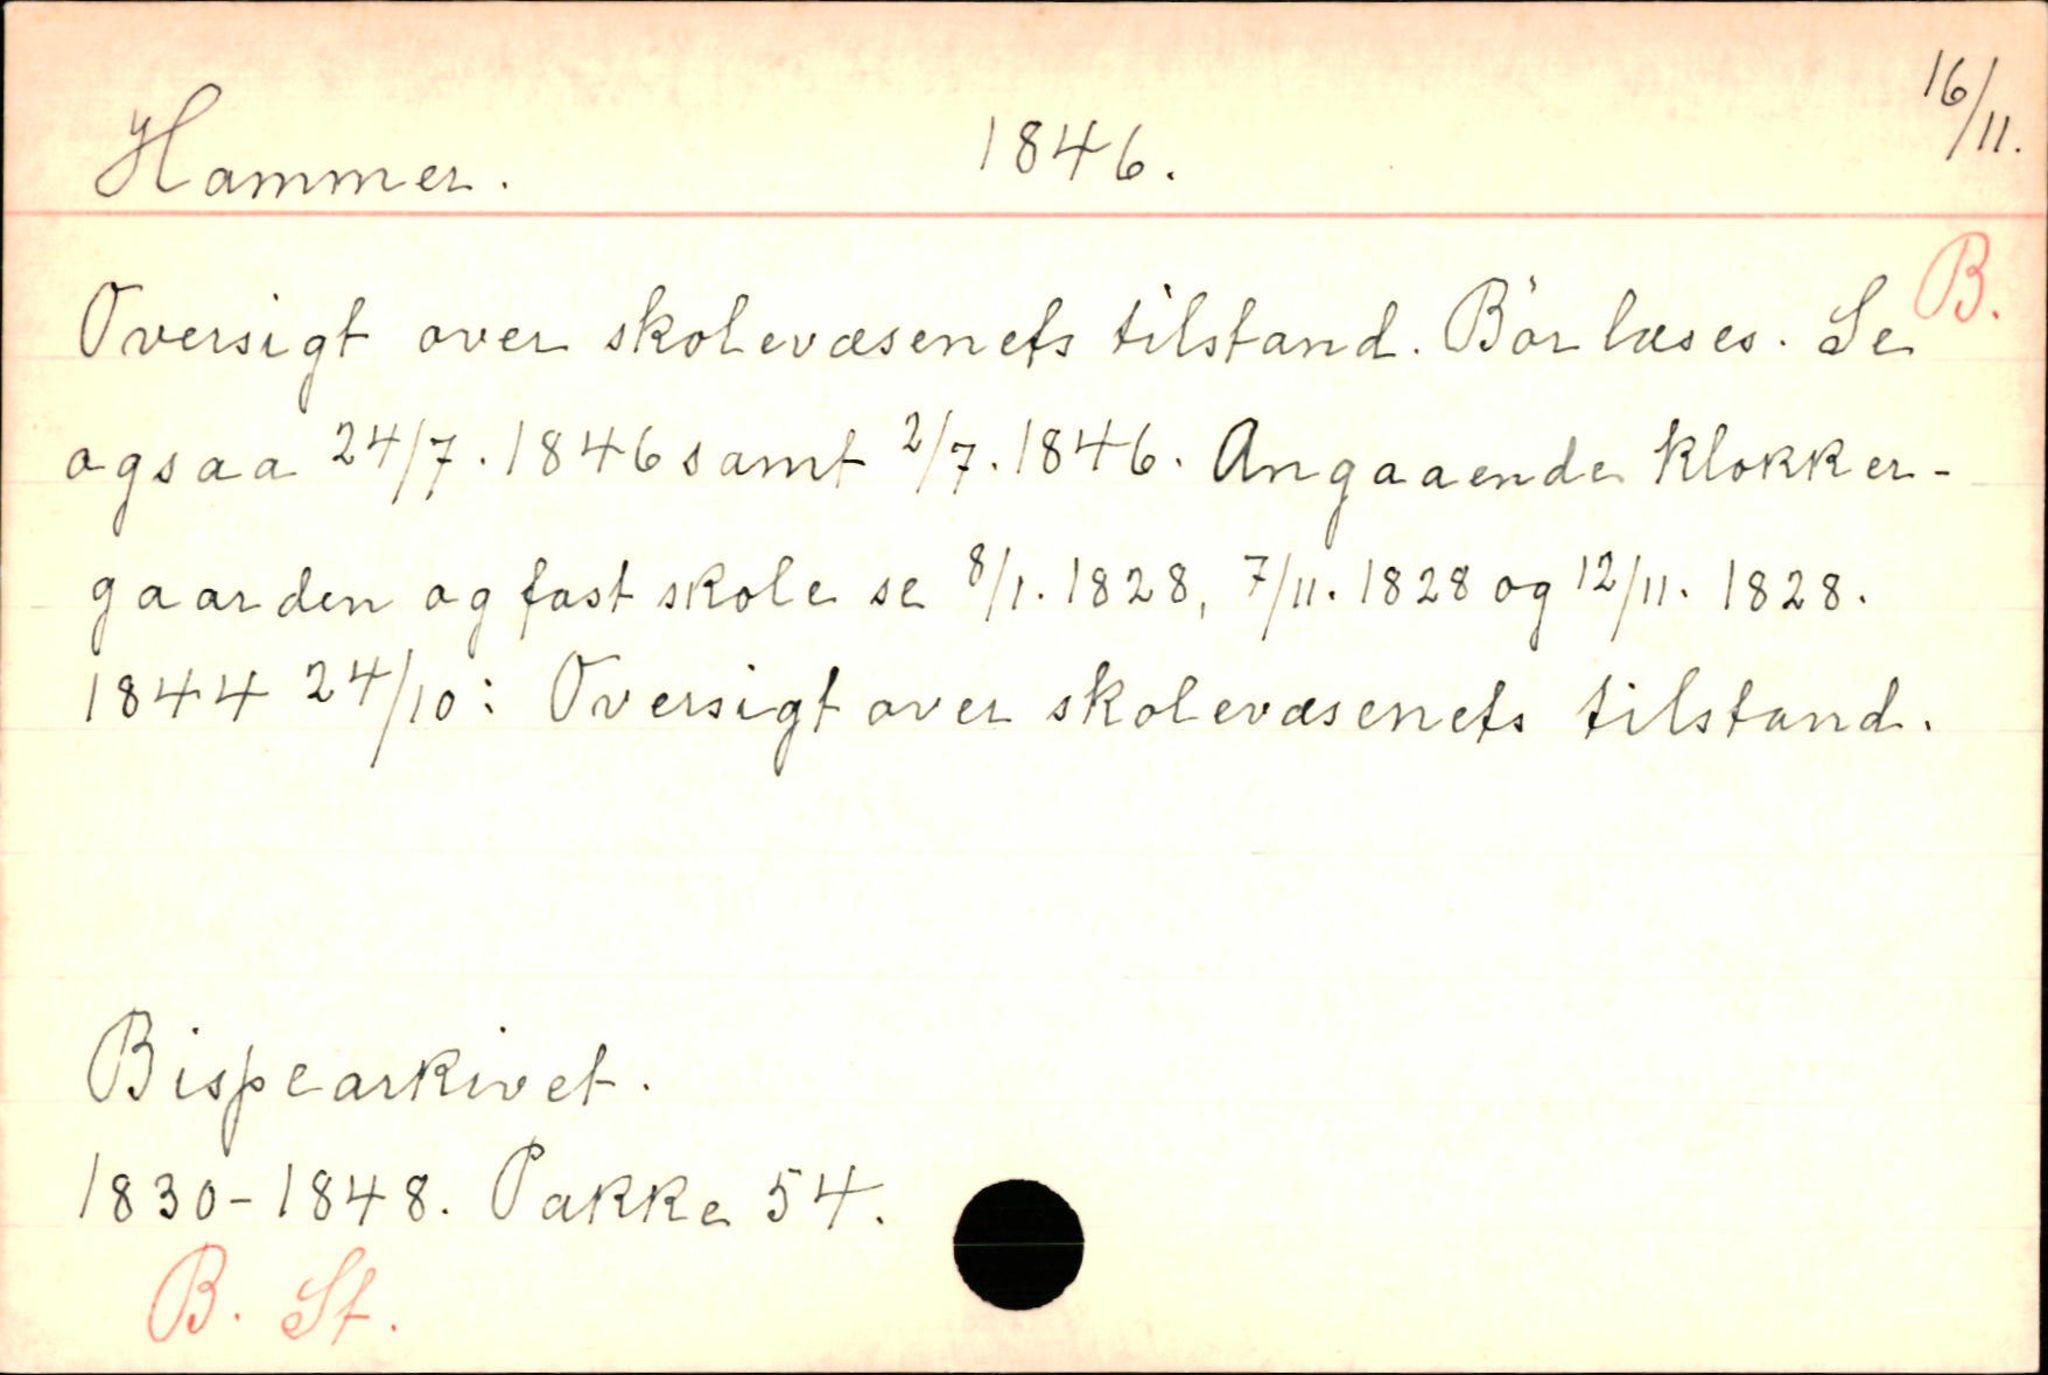 Hammer. 1846. 16/11.
B.
Oversigt over skolevæsenets tilstand. Bör læses. Se
ogsaa 24/7. 1846 samt 2/7. 1846. Angaaende klokker-
gaarden og fast skole se 8/1. 1828, 7/11. 1828 og 12/11. 1828.
1844 24/10: Oversigt over skolevæsenets tilstand.
Bispearkivet.
1830-1848. Pakke 54.
B. St.